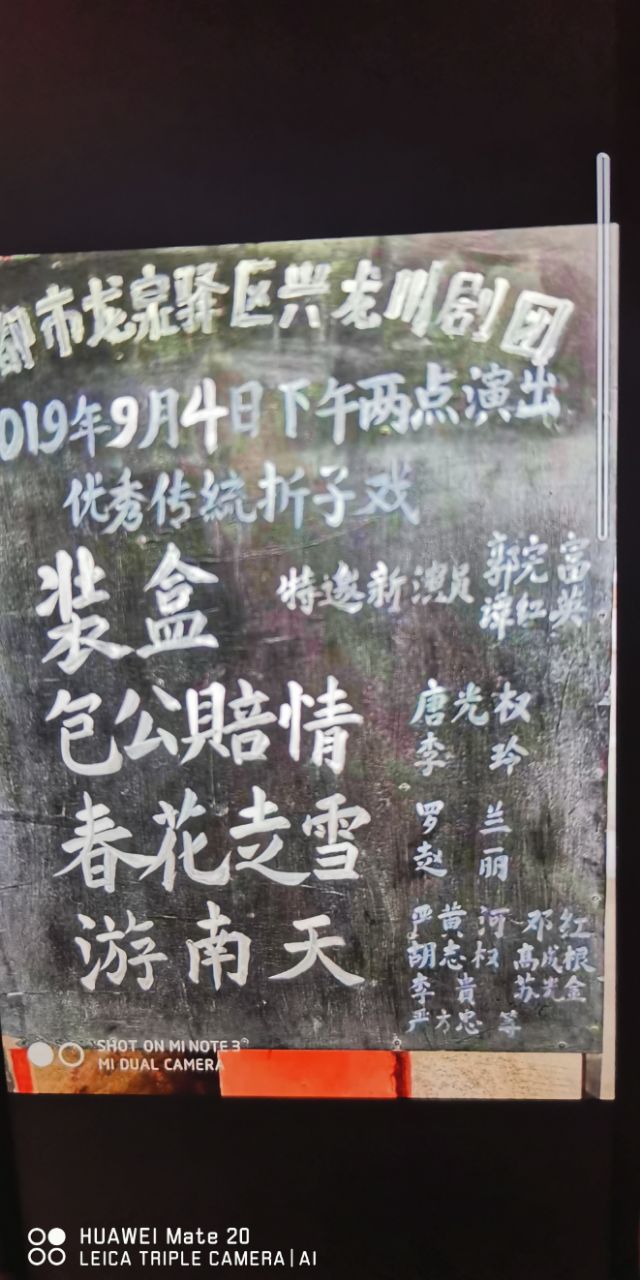 都市龙泉驿区兴龙川剧团
019年9月4日下午两点演出
优秀传统折子戏
装盒 特邀新演员 郭完富
谭红英
包公賠情 唐光权
李 玲
春花走雪 罗 兰
赵 丽
游南天 严黄河 邓红
胡志权 高成根
李 贵 苏光金
严方忠 等
SHOT ON MI NOTE 3
MI DUAL CAMERA
HUAWEI Mate 20
LEICA TRIPLE CAMERA | AI